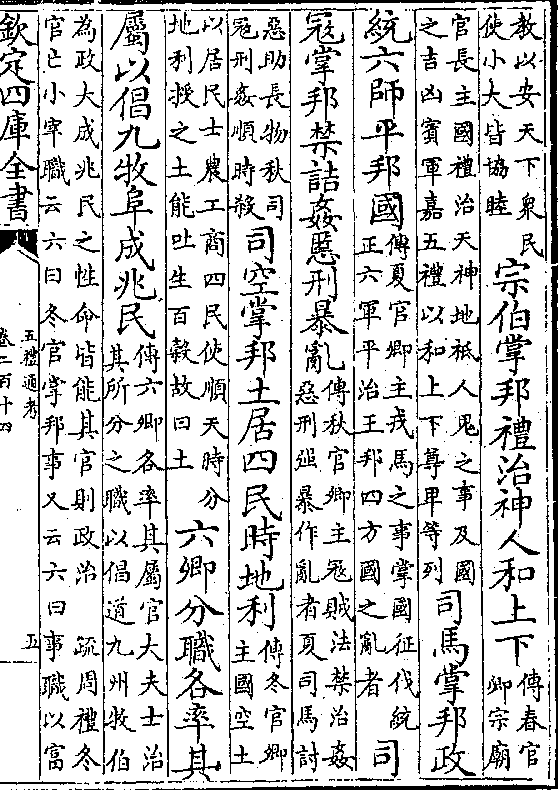 教以安天下衆民
使小大皆協睦
宗伯掌邦禮治神人和上下
傳春官
卿宗廟
官長主國禮治天神地祇人鬼之事及國
之吉凶賓軍嘉五禮以和上下尊卑等列
司馬掌邦政
統六師平邦國
傳夏官卿主戎馬之事掌國征伐統
正六軍平治王邦四方國之亂者
司
冦掌邦禁詰姦慝刑暴亂
傳秋官卿主冦賊法禁治姦
慝刑強暴作亂者夏司馬討
惡助長物秋司
冦刑姦順時殺
司空掌邦土居四民時地利
傳冬官卿
主國空土
以居民士農工商四民使順天時分
地利授之土能吐生百穀故曰土
六卿分職各率其
屬以倡九牧阜成兆民
傳六卿各率其屬官大夫士治
其所分之職以倡道九州牧伯
為政大成兆民之性命皆能其官則政治 疏周禮冬
官亡小宰職云六曰冬官掌邦事又云六曰事職以富
欽定四庫全書
五禮通考
卷二百十四
五